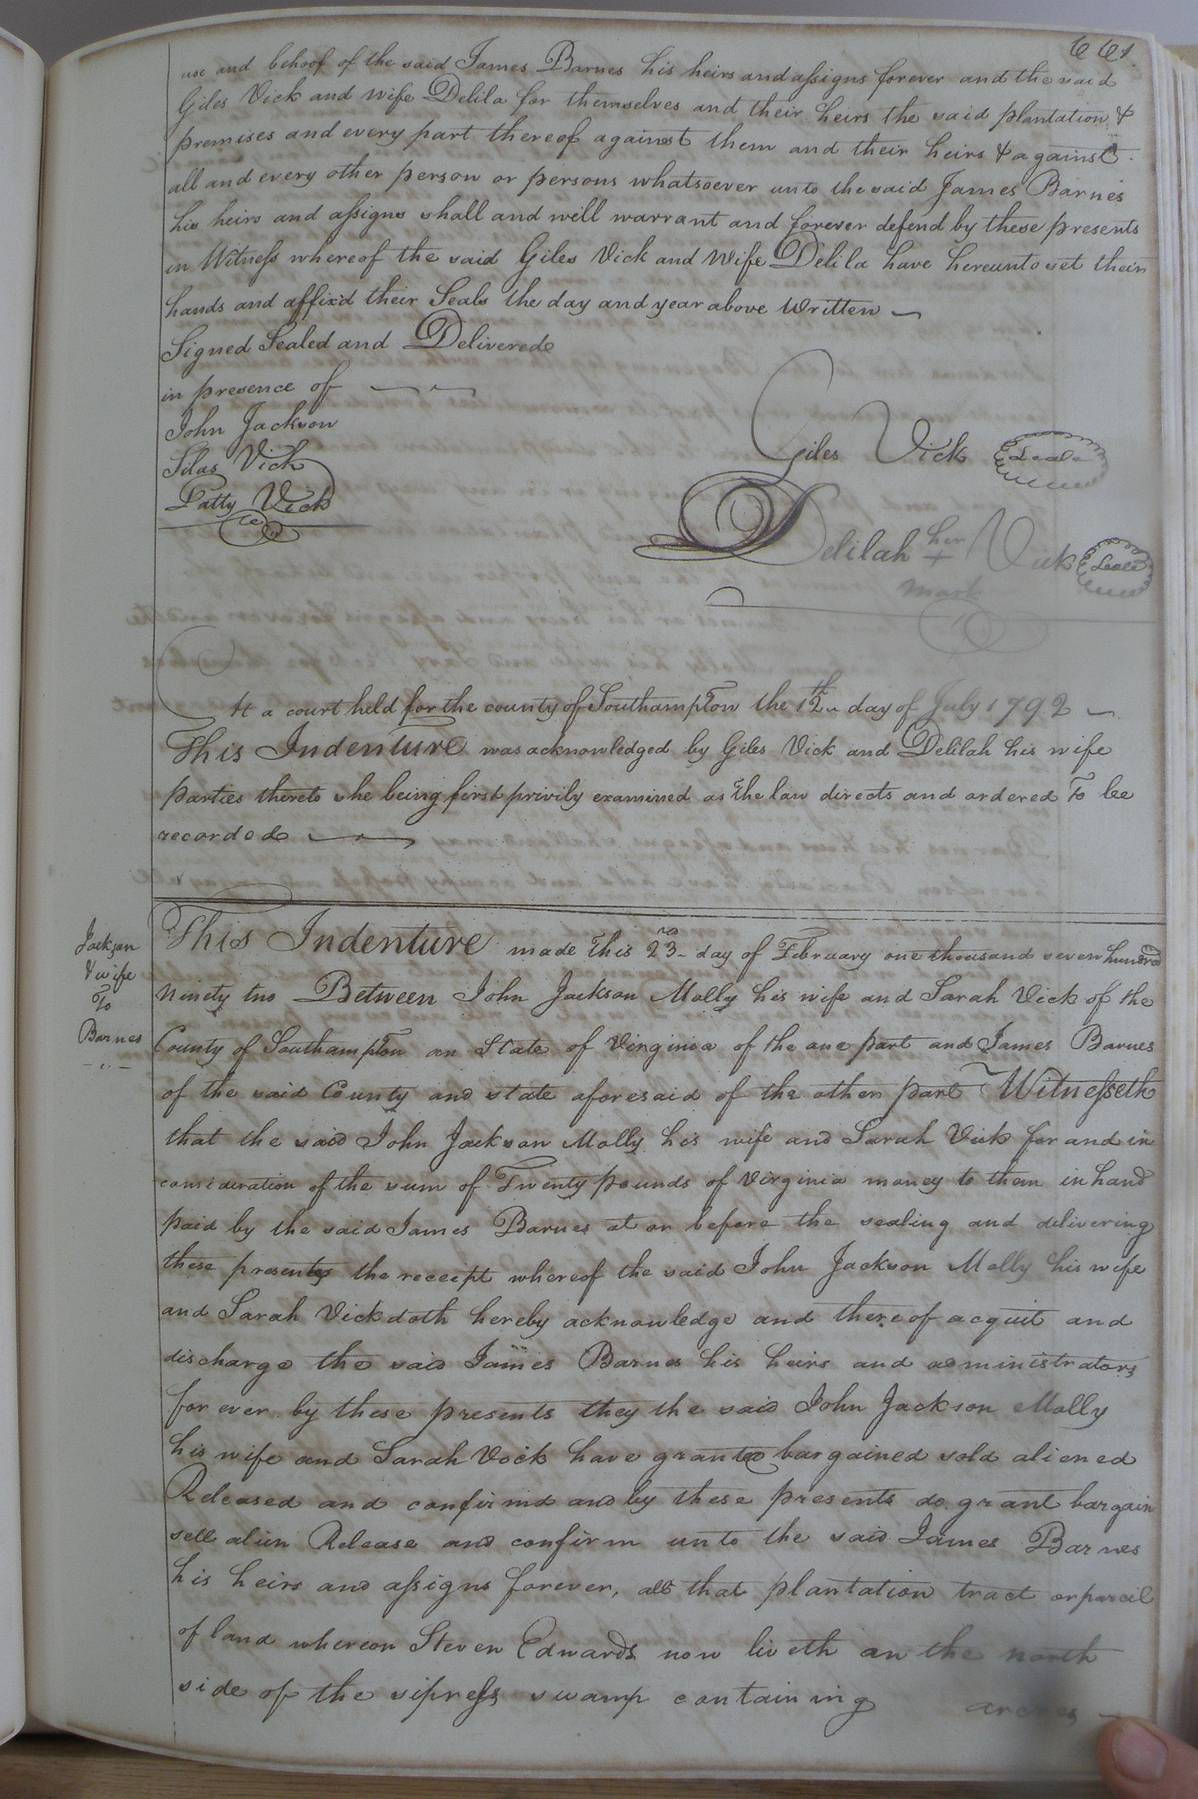 661.
use and behoof of the said James Barnes his heirs and aſsigns forever and the said
Giles Vick and wife Delila for themselves and their heirs the said plantation &
premises and every part thereof against them and their heirs & against
all and every other person or persons whatsoever unto the said James Barnes
his heirs and aſsigns shall and will warrant and forever defend by these presents
in Witneſs whereof the said Giles Vick and Wife Delila have hereunto set their
hands and affix'd their Seals the day and year above Written
Signed Sealed and Delivered
in presence of
John Jackson
Silas Vick
Patty Vick
Giles Vick Seale
Delilah her + mark Vick Seale
At a court held for the county of Southampton the 12th day of July 1792
This Indenture was acknowledged by Giles Vick and Delilah his wife
parties thereto she being first privily examined as the law directs and ordered To be
recorded
Jackson
& wife
To
Barnes
This Indenture made This 23 day of February one thousand seven hundred
Ninety two Between John Jackson Molly his wife and Sarah Vick of the
County of Southampton an State of Virginia of the one part and James Barnes
of the said County and state aforesaid of the other part Witneſseth
that the said John Jackson Molly his wife and Sarah Vick for and in
consideration of the sum of Twenty pounds of Virginia money to them in hand
paid by the said James Barnes at or before the sealing and delivering
these presents the receept whereof the said John Jackson Molly his wife
and Sarah Vick doth hereby acknowledge and thereof acquit and
discharge the said James Barnes his heirs and administrators
for ever by these presents they the said John Jackson Molly
his wife and Sarah Vock have granted bargained sold aliened
Released and confirmd and by these presents do grant bargain
sell alien Release and confirm unto the said James Barnes
his heirs and aſsigns forever, all that plantation tract or parcel
of land whereon Steven Edwards now liveth an the north
side of the sipreſs swamp containing arcres